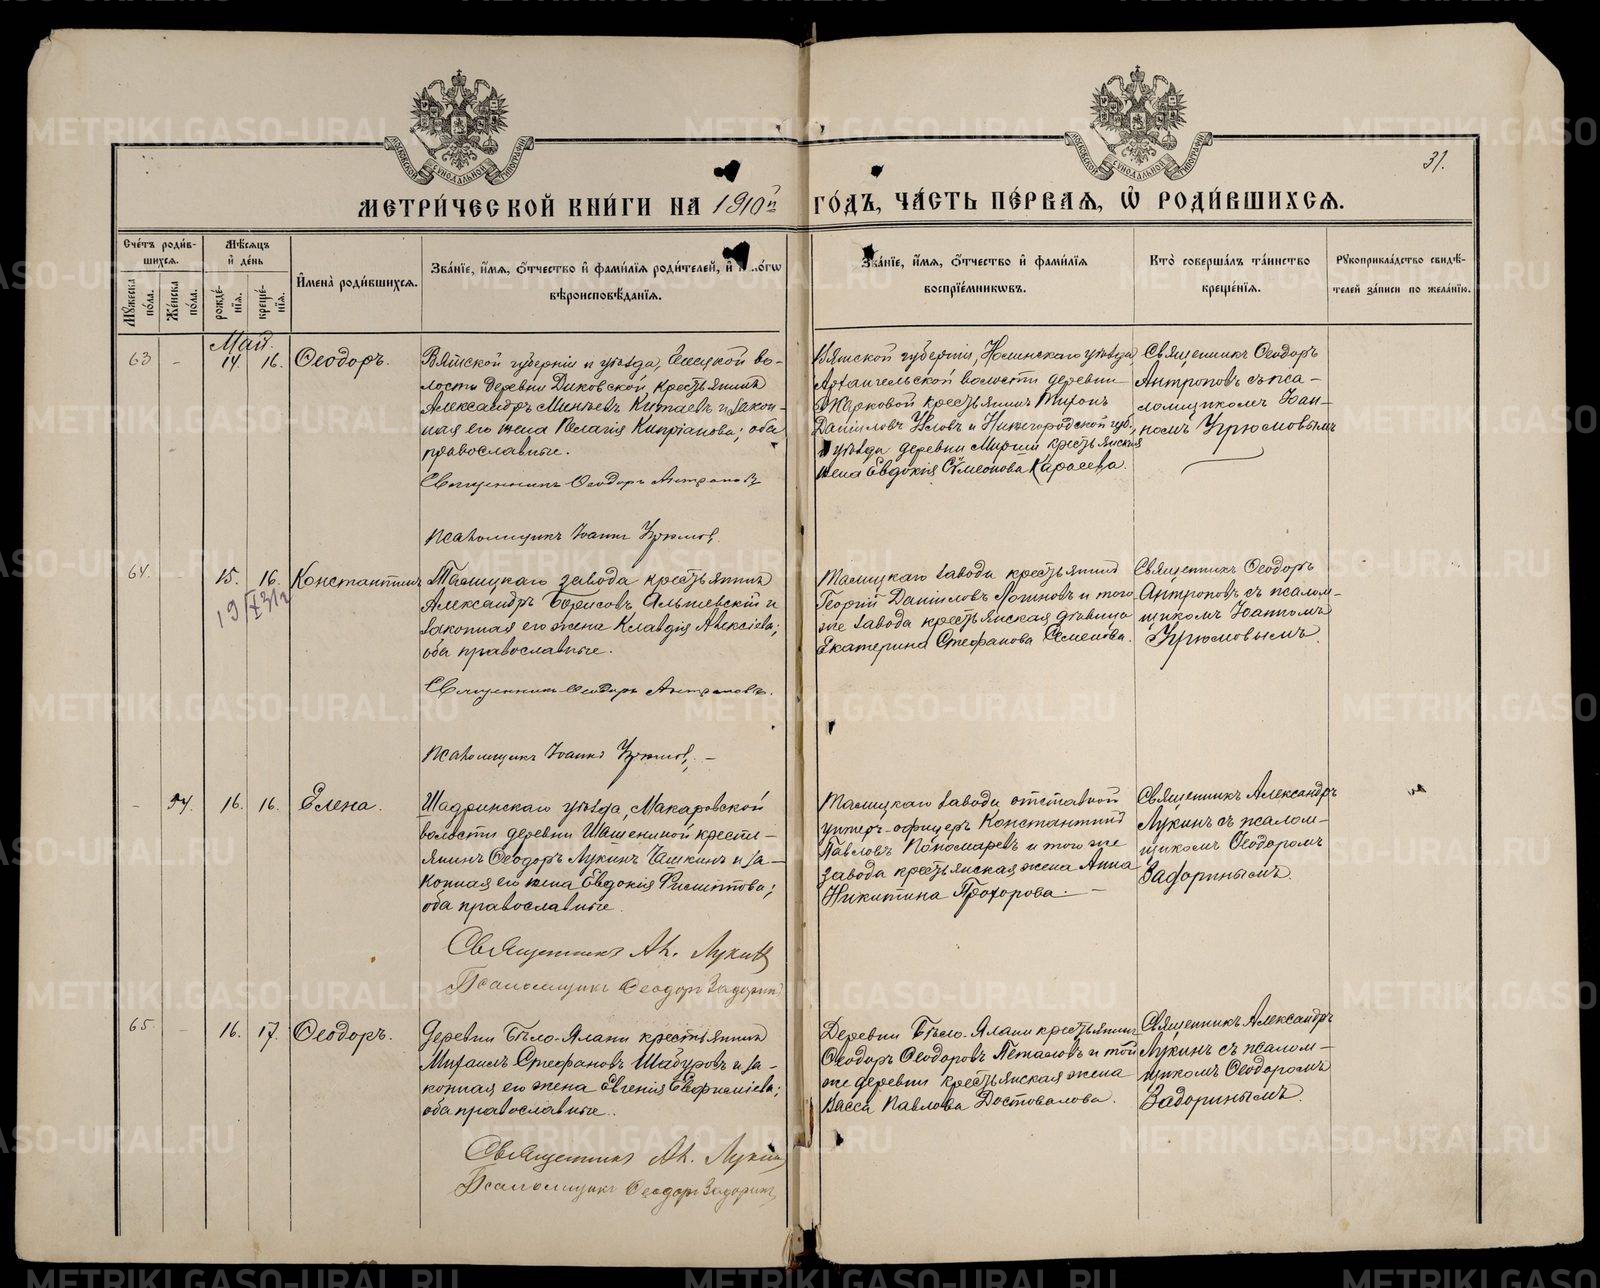 31.
МЕТРИ́ЧЕСКОЙ КНИ́ГИ НА 1910й ГО́ДЪ, ЧА́СТЬ ПЕ́РВАѦ, Ѡ҆ РОДИ́ВШИХСѦ.
Сче́тъ роди́в-
шихсѧ.
Мꙋ́жеска по́ла.
Же́нска по́ла.
Мѣ́сѧцъ и҆ де́нь
рожде́-нїѧ.
креще́-нїѧ.
И҆мена̀ роди́вшихсѧ.
Зва́нїе, и҆́мѧ, ѻ҆́тчество и҆ фами́лїѧ роди́телей, и҆
вѣроисповѣ́данїѧ.
Зва́нїе, и҆́мѧ, ѻ҆́тчество и҆ фами́лїѧ
воспрїе́мникѡвъ.
Кто̀ соверша́лъ та́инство
креще́нїѧ.
Рꙋкоприкла́дство свидѣ́-
телей за́писи по жела́нїю.
Май.
63 - 14. 16. Ѳеодоръ.
Вятской губерніи и уѣзда, во-
лости деревни Диковской, крестьянинъ
Александръ Китаевъ и закон-
ная его жена Пелагія Кипріанова; оба
православные.
Священникъ Ѳеодоръ Антроповъ
Псаломщикъ Іоаннъ Угрюмов.
Вятской губерніи, Нолинскаго уѣзда,
Архангельской волости деревни
Жарковой крестьянинъ Тихонъ
Даніиловъ и Нижегородской губ.,
и уѣзда деревни крестьянская
жена Евдокія Сѵмеонова Карасева.
Священникъ Ѳеодоръ
Антроповъ съ пса-
ломщикомъ Іоан-
номъ Угрюмовымъ
64. - 15. 16. Константинъ
19
Талицкаго завода крестьянинъ
Александръ Борисовъ и
законная его жена Клавдія Алексіева;
оба православные.
Священникъ Ѳеодоръ Антроповъ.
Псаломщикъ Іоаннъ Угрюмов. -
Талицкаго завода крестьянинъ
Георгій Даніиловъ Логиновъ и того
же завода крестьянская дѣвица
Екатерина Стефанова Семенова.
Священникъ Ѳеодоръ
Антроповъ съ псалом-
щикомъ Іоанномъ
Угрюмовымъ.
- 54. 16. 16. Елена.
Шадринскаго уѣзда, Макаровской
волости деревни крестья-
янинъ Ѳеодоръ Лукинъ и за-
конная его жена Евдокія
оба православные.
Священникъ Ал. Лукин
Псаломщикъ Ѳеодоръ Задорин
Талицкаго завода отставной
унтеръ-офицеръ Константинъ
Павловъ Пономаревъ и того же
завода крестьянская жена Анна
Никитина Прохорова. -
Священникъ Александръ
Лукинъ съ псалом-
щикомъ Ѳеодоромъ
Задоринымъ.
65. - 16. 17. Ѳеодоръ.
Деревни Бѣло-Ялани крестьянинъ
Михаилъ Стефановъ Шабуровъ и за-
конная его жена Евгенія Евфиміева;
оба православные.
Священникъ Ал. Лукин
Псаломщикъ Ѳеодоръ Задорин
Деревни Бѣло-Ялани крестьянинъ
Ѳеодоръ Ѳеодоровъ и той
же деревни крестьянская жена
Васса Павлова Достовалова.
Священникъ Александръ
Лукинъ съ псалом-
щикомъ Ѳеодоромъ
Задоринымъ.
METRIKI.GASO-URAL.RU